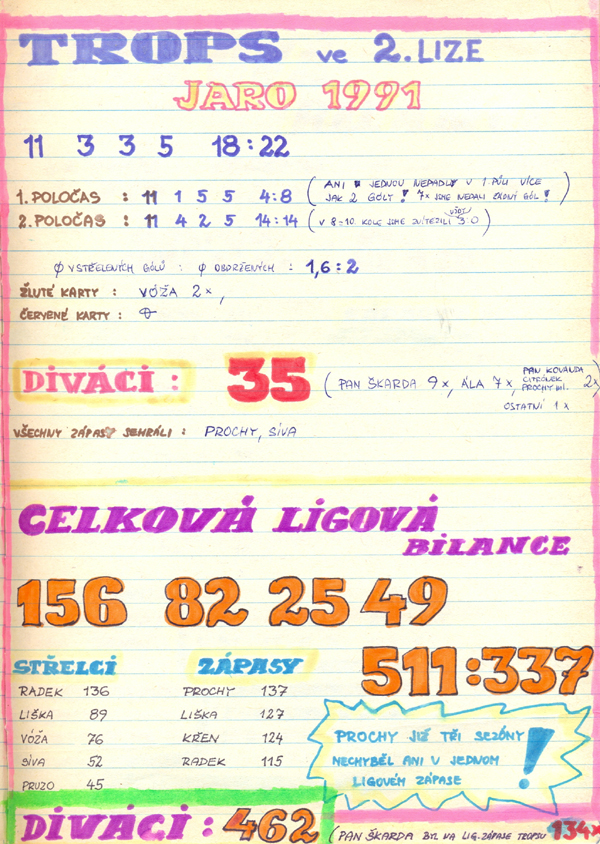 TROPS ve 2. LIZE
JARO 1991
11 3 3 5 18:22
1. POLOČAS : 11 1 5 5 4:8 ( ANI JEDNOU NEPADLY V 1. PŮLI VÍCE
JAK 2 GÓLY! 7x JSME NEDALI ŽÁDNÝ GÓL! )
2. POLOČAS : 11 4 2 5 14:14 ( V 8.-10. KOLE JSME ZVÍTĚZILI VŽDY 3:0 )
Ø VSTŘELENÝCH GÓLŮ : Ø OBDRŽENÝCH : 1,6 : 2
ŽLUTÉ KARTY : VÓŽA 2x,
ČERVENÉ KARTY : 0
DIVÁCI : 35 ( PAN ŠKARDA 9x, ÁLA 7x, PAN KOVANDA
CITRÓNEK
PROCHY ML. 2x
OSTATNÍ 1x
VŠECHNY ZÁPASY SEHRÁLI : PROCHY, SIVA
CELKOVÁ LIGOVÁ
BILANCE
156 82 25 49
511:337
STŘELCI ZÁPASY
RADEK 136 PROCHY 137
LIŠKA 89 LIŠKA 127
VÓŽA 76 KŘEN 124
SIVA 52 RADEK 115
PRUZO 45
PROCHY JIŽ TŘI SEZÓNY
NECHYBĚL ANI V JEDNOM
LIGOVÉM ZÁPASE !
DIVÁCI : 462 ( PAN ŠKARDA BYL NA LIG. ZÁPASE TROPSU 134x